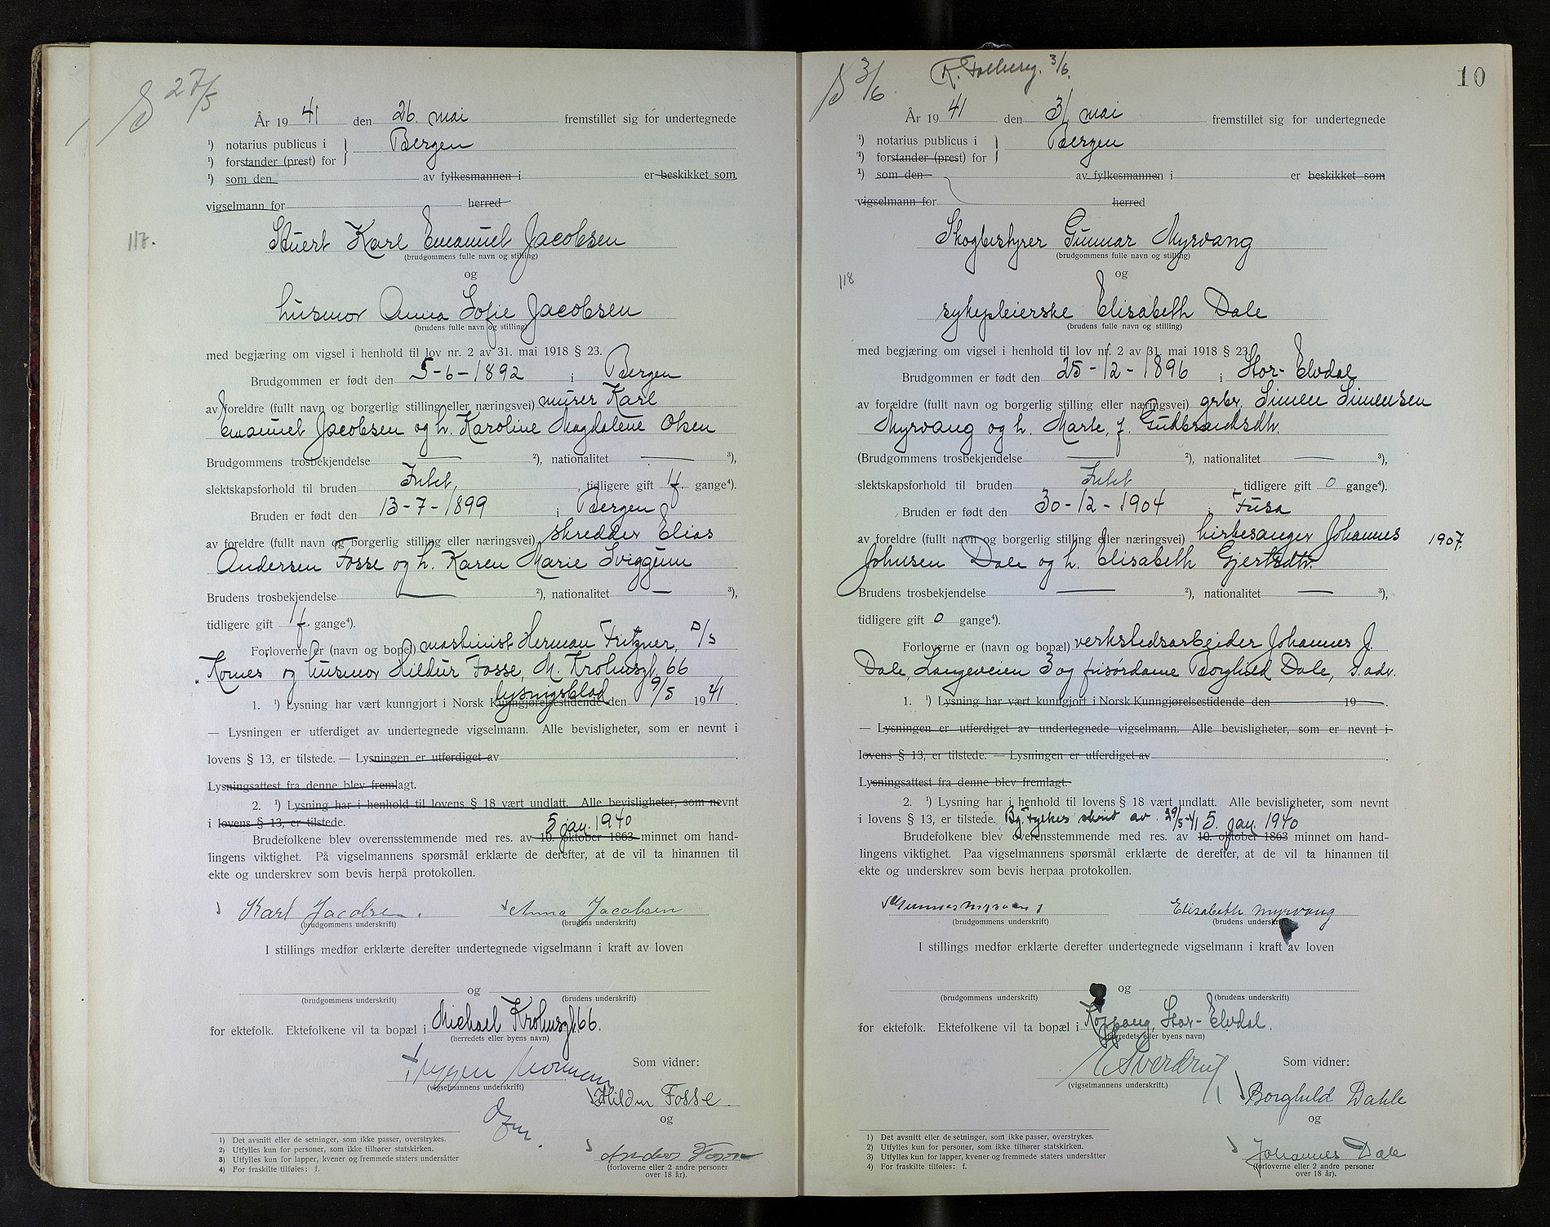 27/5
År 19 41 den 26. mai fremstillet sig for undertegnede
¹) notarius publicus i Bergen
¹) forstander (prest) for
¹) som den av fylkesmannen i er beskikket som
vigselmann for herred
117.
Stuert Karl Emanuel Jacobsen
(brudgommens fulle navn og stilling)
og
husmor Anna Sofie Jacobsen
(brudens fulle navn og stilling)
med begjæring om vigsel i henhold til lov nr. 2 av 31. mai 1918 § 23.
Brudgommen er født den 5-6-1892 i Bergen
av foreldre (fullt navn og borgerlig stilling eller næringsvei) murer Karl
Emanuel Jacobsen og h. Karoline Magdalene Olsen
Brudgommens trosbekjendelse — ²), nationalitet — ³),
slektskapsforhold til bruden Intet, tidligere gift 1 f gange⁴).
Bruden er født den 13-7-1899 i Bergen
av foreldre (fullt navn og borgerlig stilling eller næringsvei) skredder Elias
Andersen Fosse og h. Karen Marie Sviggum
Brudens trosbekjendelse — ²), nationalitet — ³),
tidligere gift 1 f. gange⁴).
Forloverne er (navn og bopel) maskinist Herman Fritzner, D/S
Komes og husmor Hildur Fosse, M. Krohnsgt. 66
1. ¹) Lysning har vært kunngjort i Norsk Kunngjørelsestidende lysningsblad den 9/5 19 41.
— Lysningen er utferdiget av undertegnede vigselmann. Alle bevisligheter, som er nevnt i
lovens § 13, er tilstede. — Lysningen er utferdiget av
Lysningsattest fra denne blev fremlagt.
2. ¹) Lysning har i henhold til lovens § 18 vært undlatt. Alle bevisligheter, som er nevnt
i lovens § 13, er tilstede. 5 jan. 1940
Brudefolkene blev overensstemmende med res. av 10. oktober 1863 minnet om hand-
lingens viktighet. På vigselmannens spørsmål erklærte de derefter, at de vil ta hinannen til
ekte og underskrev som bevis herpå protokollen.
Karl Jacobsen. Anna Jacobsen
(brudgommens underskrift) (brudens underskrift)
I stillings medfør erklærte derefter undertegnede vigselmann i kraft av loven
og
(brudgommens underskrift) (brudens underskrift)
for ektefolk. Ektefolkene vil ta bopæl i Michael Krohnsgt 66.
(herredets eller byens navn)
Som vidner:
(vigselmannens underskrift)
Hildur Fosse.
og
(forloverne eller 2 andre personer
over 18 år).
1) Det avsnitt eller de setninger, som ikke passer, overstrykes.
2) Utfylles kun for personer, som ikke tilhører statskirken.
3) Utfylles kun for lapper, kvener og fremmede staters undersåtter
4) For fraskilte tilføies: f.
3/6 3/6.
10
År 19 41 den 31 mai fremstillet sig for undertegnede
¹) notarius publicus i Bergen
¹) forstander (prest) for
¹) som den av fylkesmannen i er beskikket som
vigselmann for herred
118
Skogbestyrer Gunnar Myrvang
(brudgommens fulle navn og stilling)
og
sykepleierske Elisabeth Dale
(brudens fulle navn og stilling)
med begjæring om vigsel i henhold til lov nr. 2 av 31. mai 1918 § 23
Brudgommen er født den 25-12-1896 i Stor-Elvdal
av forældre (fullt navn og borgerlig stilling eller næringsvei) grbr. Simen Simensen
Myrvang og h. Marte, f. Gudbrandsdtr.
(Brudgommens trosbekjendelse — ²), nationalitet — ³),
slektskapsforhold til bruden Intet, tidligere gift 0 gange⁴).
Bruden er født den 30-12-1904 i Fusa
av foreldre (fullt navn og borgerlig stilling eller næringsvei) kirkesanger Johannes 1907.
Johnsen Dale og h. Elisabeth Gjertsdtr.
Brudens trosbekjendelse — ²), nationalitet — ³),
tidligere gift 0 gange⁴).
Forloverne er (navn og bopæl) verkstedsarbeider Johannes J.
Dale, Langeveien 3 og frisørdame Borghild Dale, s. adr.
1. ¹) Lysning har vært kunngjort i Norsk Kunngjørelsestidende den 19 .
— Lysningen er utferdiget av undertegnede vigselmann. Alle bevisligheter, som er nevnt i
lovens § 13, er tilstede. — Lysningen er utferdiget av
Lysningsattest fra denne blev fremlagt.
2. ¹) Lysning har i henhold til lovens § 18 vært undlatt. Alle bevisligheter, som er nevnt
i lovens § 13, er tilstede. Bg. Fylkes skriv av 29/5-41 5. jan 1940
Brudefolkene blev overensstemmende med res. av 10. oktober 1863 minnet om hand-
lingens viktighet. Paa vigselmannens spørsmål erklærte de derefter, at de vil ta hinannen til
ekte og underskrev som bevis herpaa protokollen.
Gunnar Myrvang Elisabeth Myrvang
(brudgommens underskrift) (brudens underskrift)
I stillings medfør erklærte derefter undertegnede vigselmann i kraft av loven
og
(brudgommens underskrift) (brudens underskrift)
for ektefolk. Ektefolkene vil ta bopæl i Koppang, Stor-Elvdal.
(herredets eller byens navn)
Sverdrup Som vidner:
(vigselmannens underskrift.)
Borghild Dahle
og
Johannes Dale
(forloverne eller 2 andre personer
over 18 år).
1) Det avsnitt eller de setninger, som ikke passer, overstrykes.
2) Utfylles kun for personer, som ikke tilhører statskirken.
3) Utfylles kun for lapper, kvener og fremmede staters undersåtter
4) For fraskilte tilføies: f.